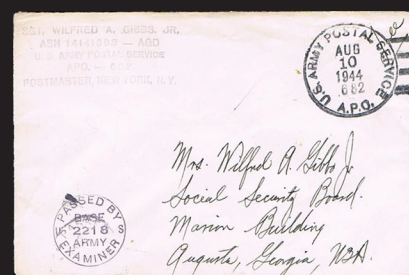 SGT. WILFRED A. GIBBS, JR.
ASN 14141508 — AGD
U. S. ARMY POSTAL SERVICE
APO. — 605
POSTMASTER, NEW YORK, N.Y.
U.S. ARMY POSTAL SERVICE
AUG
10
1944
682
A.P.O.
Mrs. Wilfred A. Gibbs Jr
Social Security Board.
Marion Building
Augusta, Georgia, USA.
PASSED BY
BASE
2218
ARMY
EXAMINER
U S